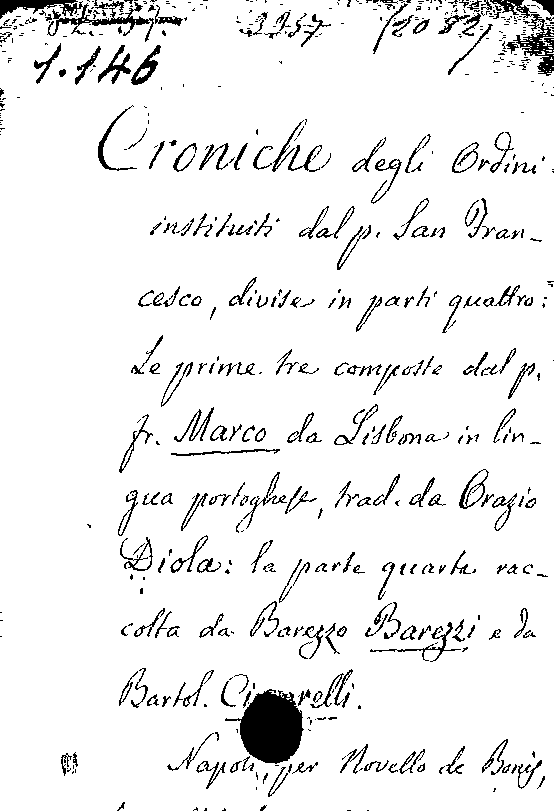 3257 (2082)
1.146
Croniche degli Ordini
instituiti dal p. San Fran-
cesco, divise in parti quattro:
Le prime tre composte dal p.
fr. Marco da Lisbona in lin-
gua portoghese, trad. da Orazio
Diola: la parte quarta rac-
colta da Barezzo Barezzi e da
Bartol.
Napoli, per Novello de Bonis,